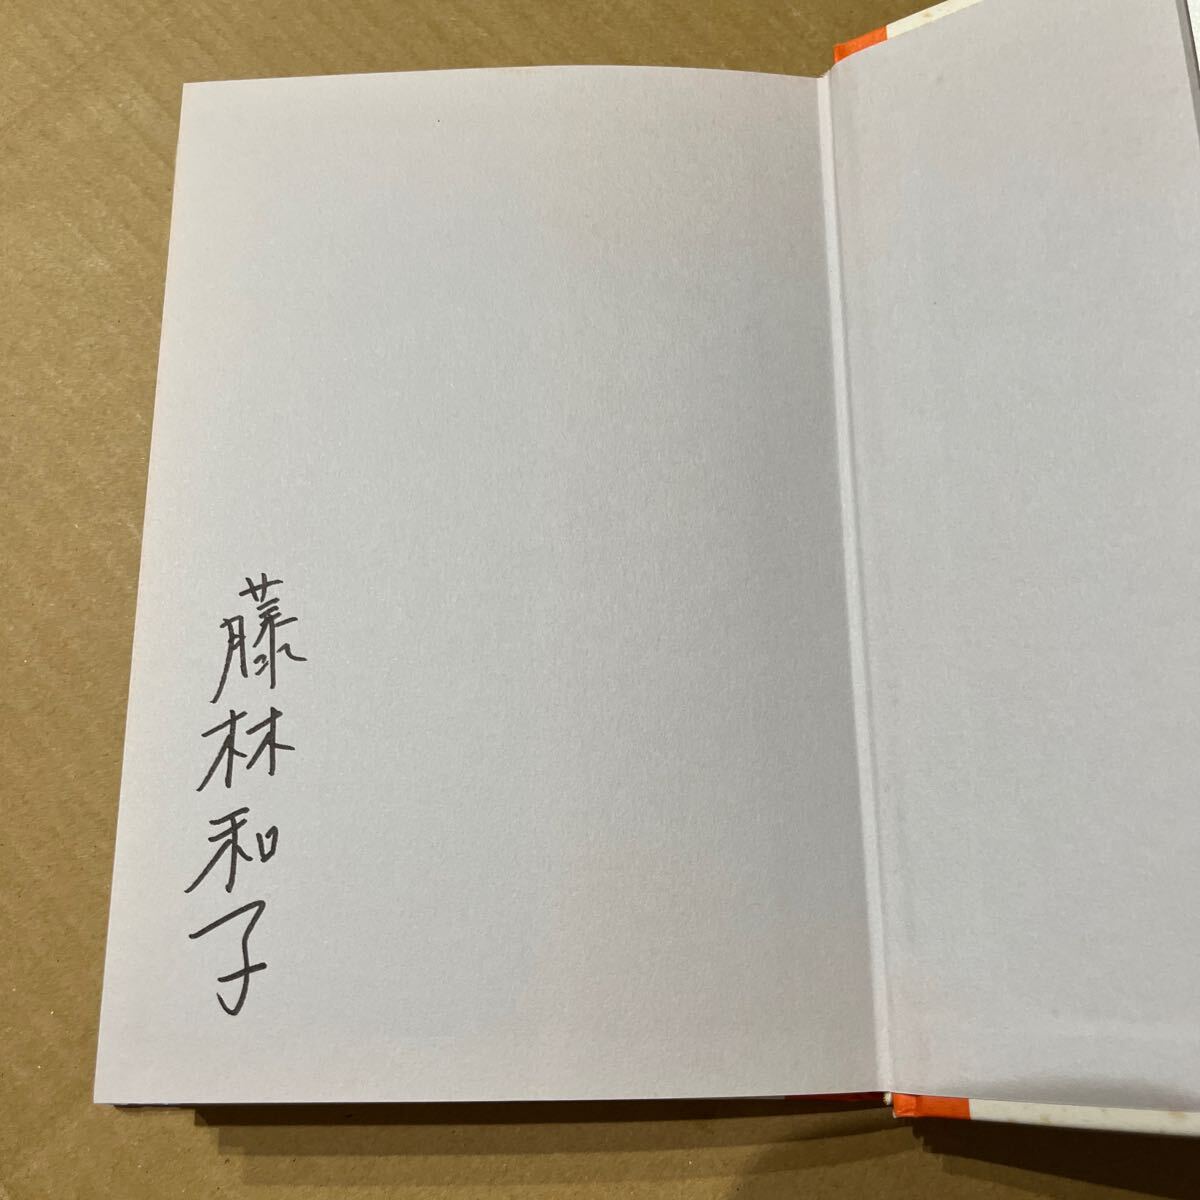 藤林和子